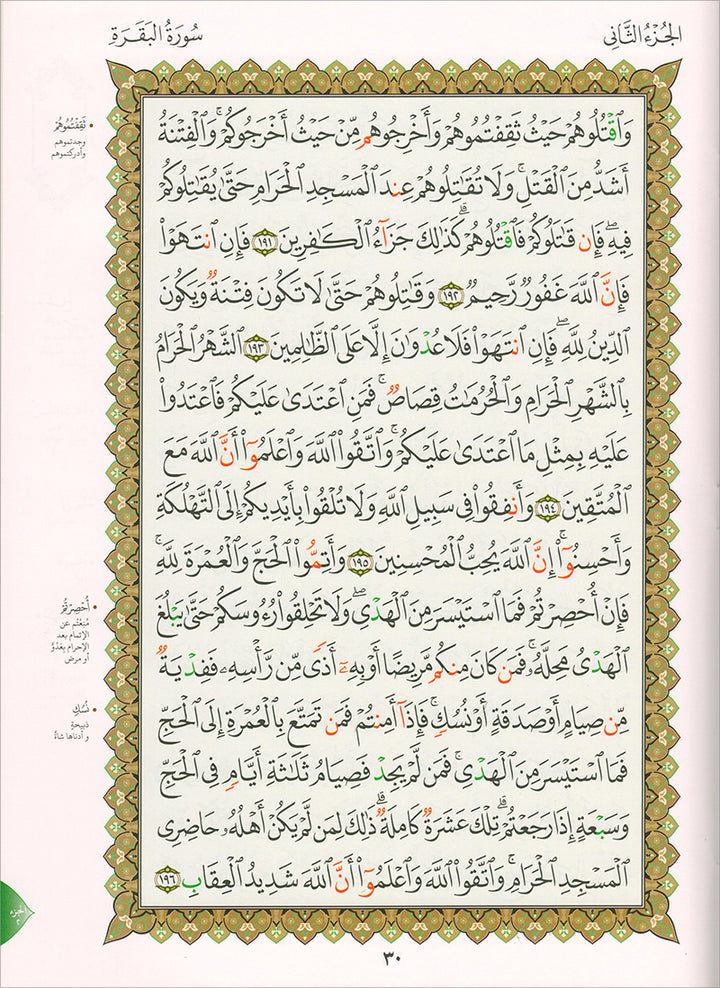 الجُزْءُ الثَّانِى
سُورَةُ البَقَرَةِ
وَٱقْتُلُوهُمْ حَيْثُ ثَقِفْتُمُوهُمْ وَأَخْرِجُوهُم مِّنْ حَيْثُ أَخْرَجُوكُمْ ۚ وَٱلْفِتْنَةُ
أَشَدُّ مِنَ ٱلْقَتْلِ ۚ وَلَا تُقَـٰتِلُوهُمْ عِندَ ٱلْمَسْجِدِ ٱلْحَرَامِ حَتَّىٰ يُقَـٰتِلُوكُمْ
فِيهِ ۖ فَإِن قَـٰتَلُوكُمْ فَٱقْتُلُوهُمْ ۗ كَذَٰلِكَ جَزَآءُ ٱلْكَـٰفِرِينَ ١٩١ فَإِنِ ٱنتَهَوْا۟
فَإِنَّ ٱللَّهَ غَفُورٌ رَّحِيمٌ ١٩٢ وَقَـٰتِلُوهُمْ حَتَّىٰ لَا تَكُونَ فِتْنَةٌ وَيَكُونَ
ٱلدِّينُ لِلَّهِ ۖ فَإِنِ ٱنتَهَوْا۟ فَلَا عُدْوَٰنَ إِلَّا عَلَى ٱلظَّـٰلِمِينَ ١٩٣ ٱلشَّهْرُ ٱلْحَرَامُ
بِٱلشَّهْرِ ٱلْحَرَامِ وَٱلْحُرُمَـٰتُ قِصَاصٌ ۚ فَمَنِ ٱعْتَدَىٰ عَلَيْكُمْ فَٱعْتَدُوا۟
عَلَيْهِ بِمِثْلِ مَا ٱعْتَدَىٰ عَلَيْكُمْ ۚ وَٱتَّقُوا۟ ٱللَّهَ وَٱعْلَمُوٓا۟ أَنَّ ٱللَّهَ مَعَ
ٱلْمُتَّقِينَ ١٩٤ وَأَنفِقُوا۟ فِى سَبِيلِ ٱللَّهِ وَلَا تُلْقُوا۟ بِأَيْدِيكُمْ إِلَى ٱلتَّهْلُكَةِ
وَأَحْسِنُوٓا۟ ۛ إِنَّ ٱللَّهَ يُحِبُّ ٱلْمُحْسِنِينَ ١٩٥ وَأَتِمُّوا۟ ٱلْحَجَّ وَٱلْعُمْرَةَ لِلَّهِ ۚ
فَإِنْ أُحْصِرْتُمْ فَمَا ٱسْتَيْسَرَ مِنَ ٱلْهَدْىِ ۖ وَلَا تَحْلِقُوا۟ رُءُوسَكُمْ حَتَّىٰ يَبْلُغَ
ٱلْهَدْىُ مَحِلَّهُۥ ۚ فَمَن كَانَ مِنكُم مَّرِيضًا أَوْ بِهِۦٓ أَذًى مِّن رَّأْسِهِۦ فَفِدْيَةٌ
مِّن صِيَامٍ أَوْ صَدَقَةٍ أَوْ نُسُكٍ ۚ فَإِذَآ أَمِنتُمْ فَمَن تَمَتَّعَ بِٱلْعُمْرَةِ إِلَى ٱلْحَجِّ
فَمَا ٱسْتَيْسَرَ مِنَ ٱلْهَدْىِ ۚ فَمَن لَّمْ يَجِدْ فَصِيَامُ ثَلَـٰثَةِ أَيَّامٍ فِى ٱلْحَجِّ
وَسَبْعَةٍ إِذَا رَجَعْتُمْ ۗ تِلْكَ عَشَرَةٌ كَامِلَةٌ ۗ ذَٰلِكَ لِمَن لَّمْ يَكُنْ أَهْلُهُۥ حَاضِرِى
ٱلْمَسْجِدِ ٱلْحَرَامِ ۚ وَٱتَّقُوا۟ ٱللَّهَ وَٱعْلَمُوٓا۟ أَنَّ ٱللَّهَ شَدِيدُ ٱلْعِقَابِ ١٩٦
ثَقِفْتُمُوهُمْ
وجدتموهم
وأدركتموهم
أُحْصِرْتُمْ
مُنِعْتُم عن
الإتمام بعد
الإحرام بِعَدُوٍّ
أو مرض
نُسُكٍ
ذبيحةٍ
وأدناها شاةٌ
الجزء
٢
٣٠